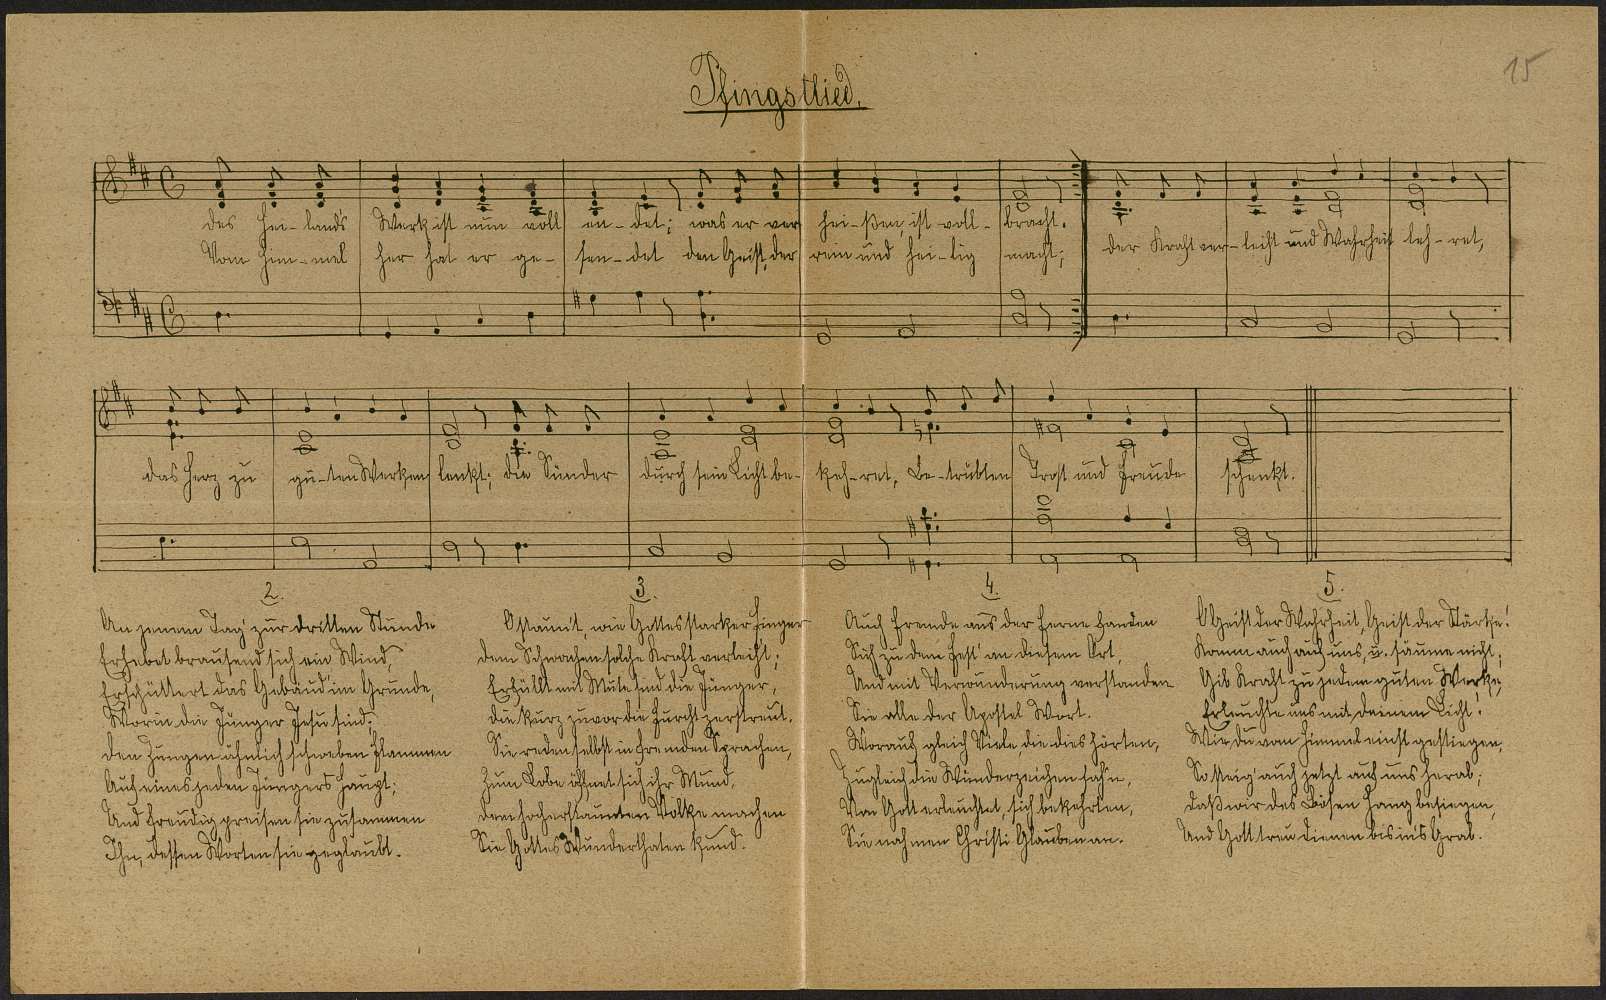 15
Pfingstlied.
des Hei-lands Werk ist nun voll en-det; was er ver hei-ßen, ist voll-bracht.
Vom Him-mel her hat er ge-sen-det den Geist, der rein und hei-lig macht;
der Kraft ver-leiht und Wahrheit leh-ret,
das Herz zu gu-ten Werken lenkt; die Sünder durch sein Licht be-keh-ret, Be-trübten Trost und Freude schenkt.
2.
An jenem Tag' zur dritten Stunde
Erhebet brausend sich ein Wind,
Erschüttert das Gebäud' im Grunde,
Worin die Jünger Jesu sind.
den Zungen ähnlich schweben Flammen
Auf eines jeden Jüngers Haupt;
Und freudig preisen sie zusammen
Ihn, dessen Worten sie geglaubt.
3.
O staun't, wie Gottes starker Finger
dem Schwachen solche Kraft verleiht;
Erfüllt mit Mute sind die Jünger,
die kurz zuvor die Furcht zerstreut.
Sie reden selbst in fremden Sprachen,
Zum Lobe öffnet sich ihr Mund,
dem hocherstaunten Volke machen
Sie Gottes Wunderthaten kund.
4.
Auch Fremde aus der Ferne fanden
Sich zu dem Fest' an diesem Ort,
Und mit Verwunderung verstanden
Sie alle der Apostel Wort.
Worauf gleich Viele, die dies hörten,
Zugleich die Wunderzeichen sah'n,
Von Gott erleuchtet, sich bekehrten,
Sie nahmen Christi Glauben an.
5.
O Geist der Wahrheit, Geist der Stärke!
Komm auch auf uns, u. säume nicht;
Gib Kraft zu jedem guten Werke,
Erleuchte uns mit deinem Licht!
Wie du vom Himmel einst gestiegen,
So steig' auch jetzt auf uns herab;
daß wir des Bösen Hang besiegen,
Und Gott treu dienen bis in's Grab.